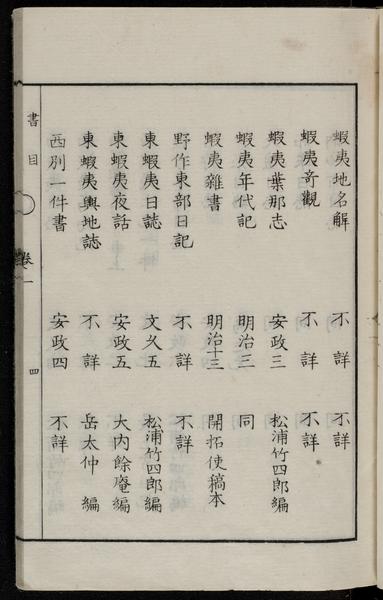 蝦夷地名解 不詳 不詳
蝦夷奇觀 不詳 不詳
蝦夷葉那志 安政三 松浦竹四郎編
蝦夷年代記 明治三 同
蝦夷雜書 明治十三 開拓使稿本
野作東部日記 不詳 不詳
東蝦夷日誌 文久五 松浦竹四郎編
東蝦夷夜話 安政五 大内餘庵編
東蝦夷輿地誌 不詳 岳太仲編
西別一件書 安政四 不詳
書目 卷一 四